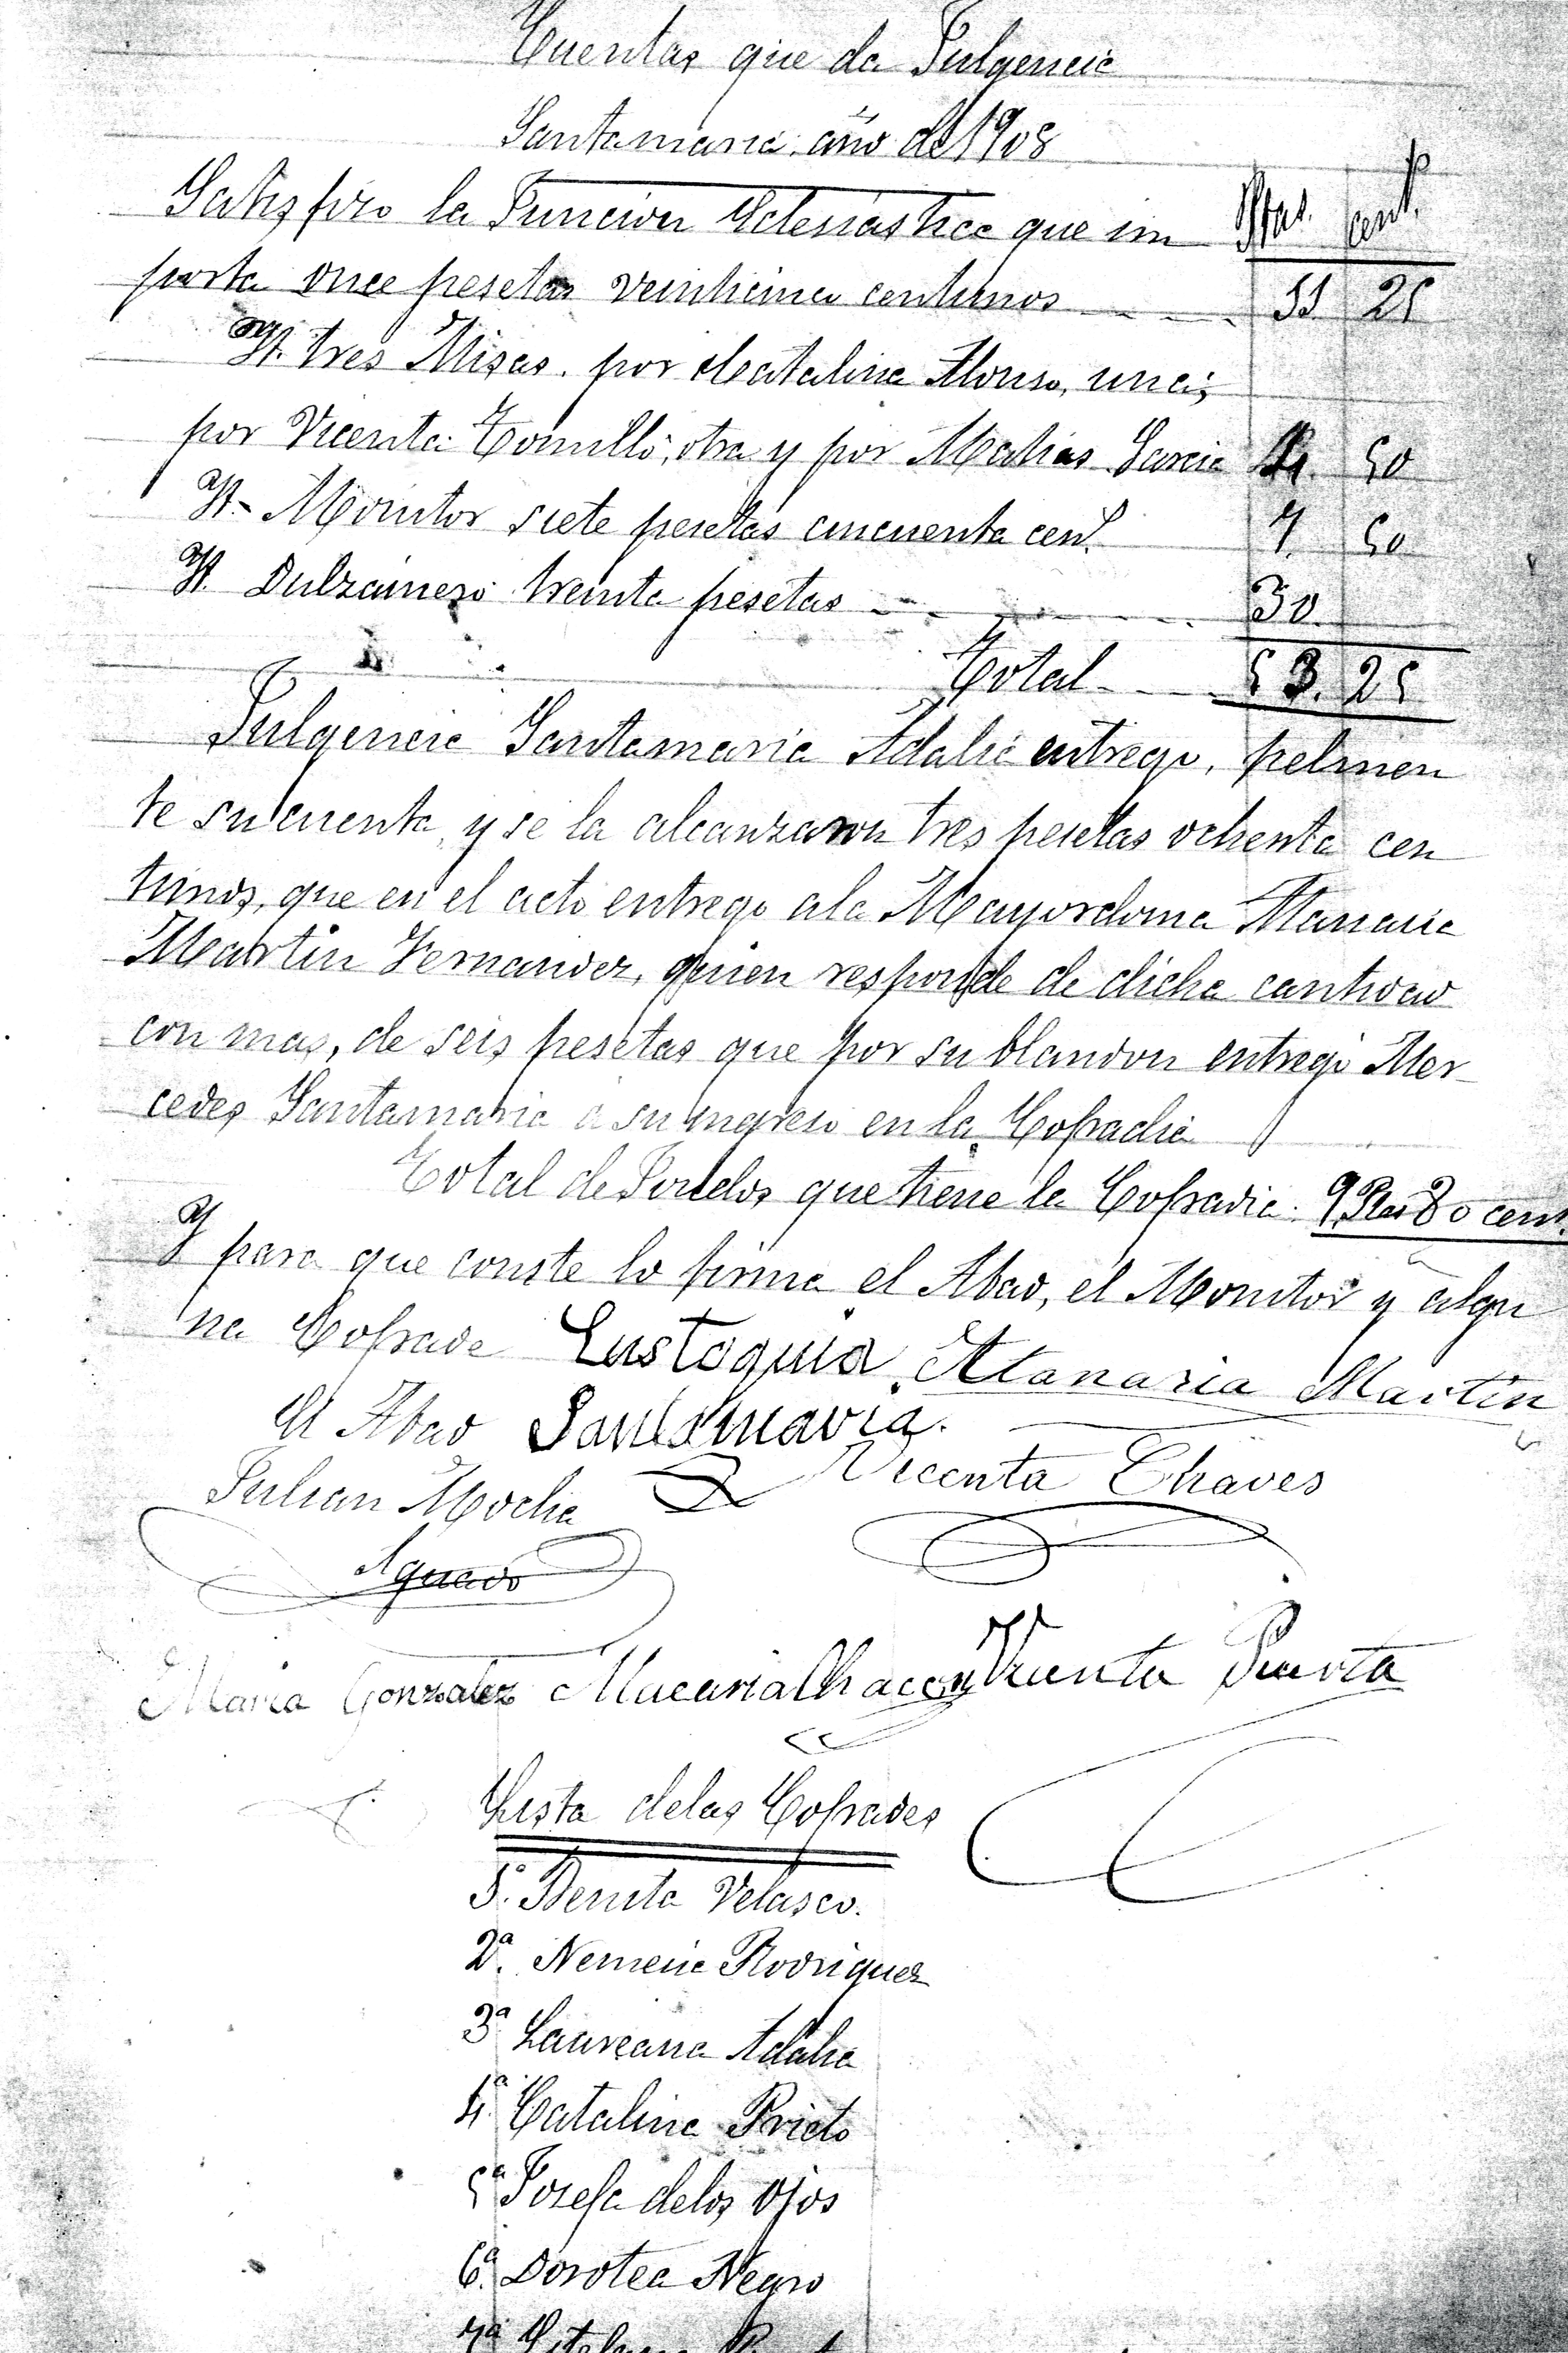 Cuentas que da Fulgencia
Santamaria, año de 1908
Satisfizo la Funcion Eclesiastica que im
Ptas. cent.
porta once pesetas veinticinco centimos 11 25
It. tres Misas. por Catalina Alonso, una;
por Vicenta Tomillo; otra y por Matias Garcia 4. 50
It. Monitor siete pesetas cincuenta cent. 7. 50
It. Dulzainero treinta pesetas 30.
Total 53. 25
Fulgencia Santamaria Adalia entrego, felmen
te su cuenta, y se la alcanzaron tres pesetas ochenta cen
timos, que en el acto entrego a la Mayordoma Atanasia
Martin Fernandez, quien responde de dicha cantidad
con mas, de seis pesetas que por su blandon entrego Mer-
cedes Santamaria a su ingreso en la Cofradia
Total de Fondos que tiene la Cofradia. 9 Ptas 80 cent.
Y para que conste lo firma el Abad, el Monitor y algu
na Cofrade Eustoquia Atanasia Martin
El Abad Santamaria.
Julian Mocha Vicenta Chaves
Aguado
Maria Gonzalez Macaria Chacon Vicenta Puerta
Lista de las Cofrades
1ª. Benita Velasco.
2ª. Nemecia Rodriguez
3ª Laureana Adalia
4ª. Catalina Prieto
5ª Josefa de los Ojos
6ª. Dorotea Negro
7ª